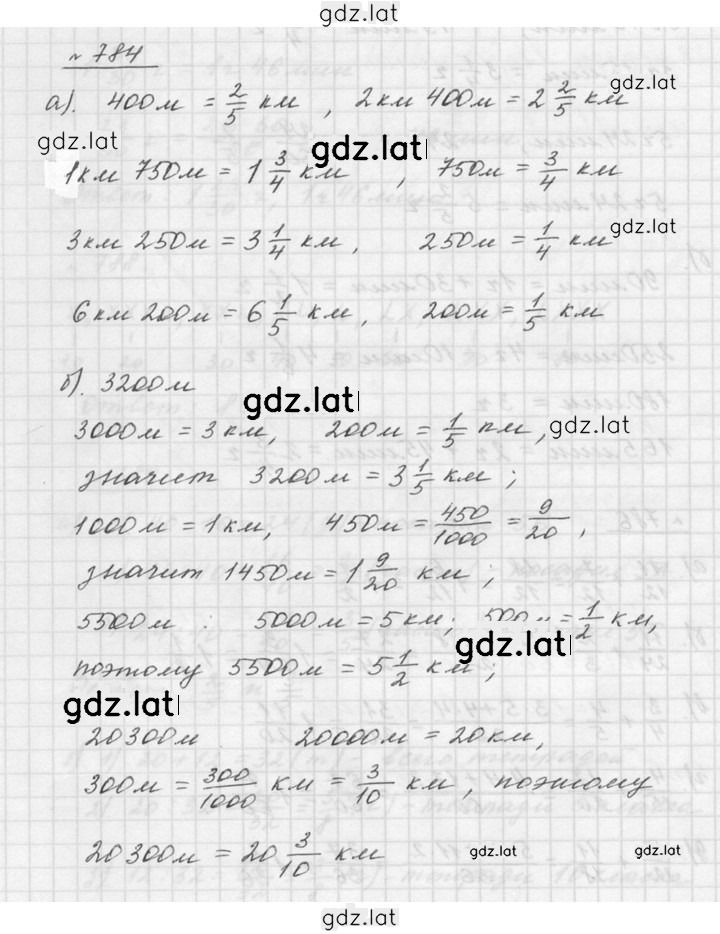 gdz.lat
№ 784
а). 400м = 2/5 км , 2км 400м = 2 2/5 км
gdz.lat
gdz.lat
gdz.lat
1км 750м = 1 3/4 км , 750м = 3/4 км
3км 250м = 3 1/4 км, 250м = 1/4 км
gdz.lat
6км 200м = 6 1/5 км, 200м = 1/5 км
б). 3200м
gdz.lat
3000м = 3км, 200м = 1/5 км,
gdz.lat
значит 3200м = 3 1/5 км ;
1000м = 1км, 450м = 450/1000 = 9/20 ,
значит 1450м = 1 9/20 км ;
5500м : 5000м = 5км; 500м = 1/2 км,
gdz.lat
поэтому 5500м = 5 1/2 км ;
gdz.lat
20300м 20000м = 20км,
300м = 300/1000 км = 3/10 км , поэтому
20300м = 20 3/10 км
gdz.lat
gdz.lat
gdz.lat